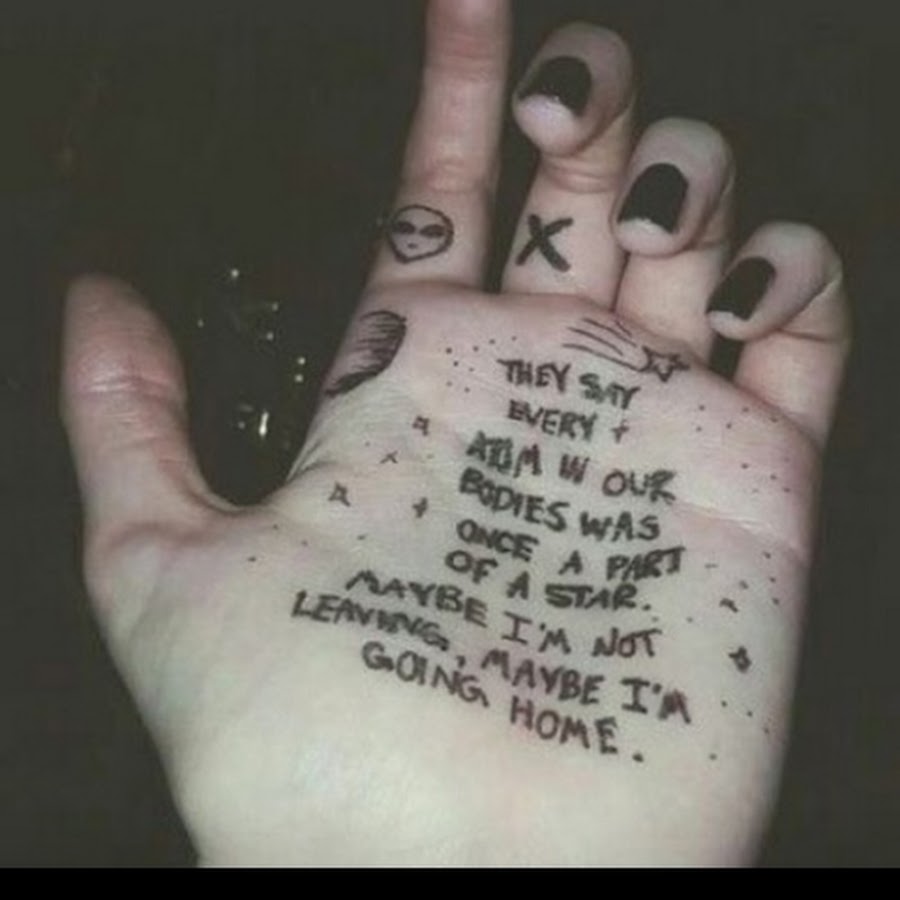 X
THEY SAY
EVERY
ATOM IN OUR
BODIES WAS
ONCE A PART
OF A STAR.
MAYBE I'M NOT
LEAVING, MAYBE I'M
GOING HOME.